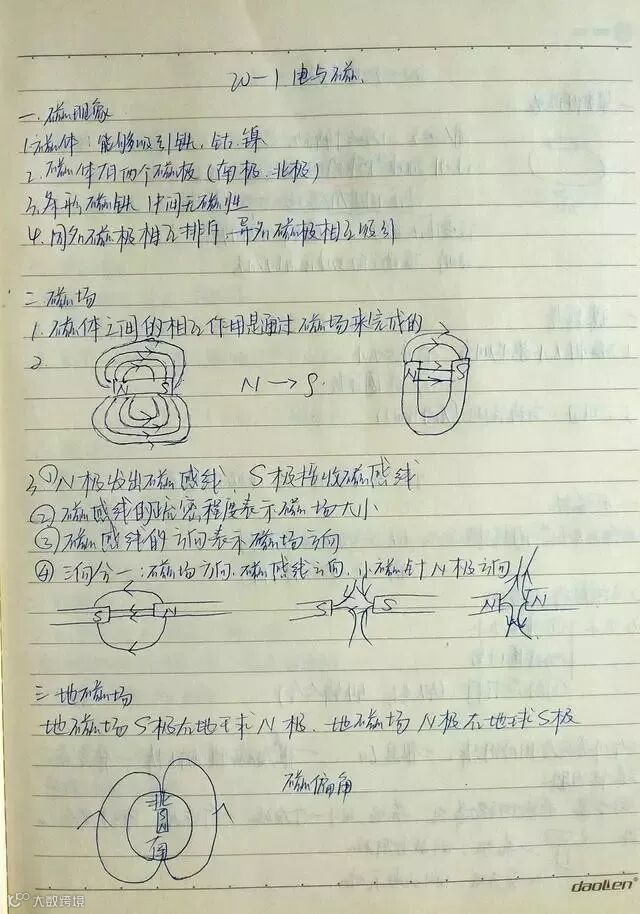 20-1 电与磁.
一. 磁现象
1. 磁体: 能够吸引铁. 钴. 镍
2. 磁体有两个磁极 (南极. 北极)
3. 条形磁铁 中间无磁性
4. 同名磁极相互排斥, 异名磁极相互吸引
二. 磁场
1. 磁体之间的相互作用是通过磁场来完成的
2.
N S
N → S.
N S
3. ① N极发出磁感线, S极接收磁感线
② 磁感线的疏密程度表示磁场大小
③ 磁感线的方向表示磁场方向
④ 三向合一: 磁场方向. 磁感线方向, 小磁针N极方向
S N
S S
N N
三 地磁场
地磁场S极在地球N极. 地磁场N极在地球S极
磁偏角
北
S
N
南
daolien
大数跨境